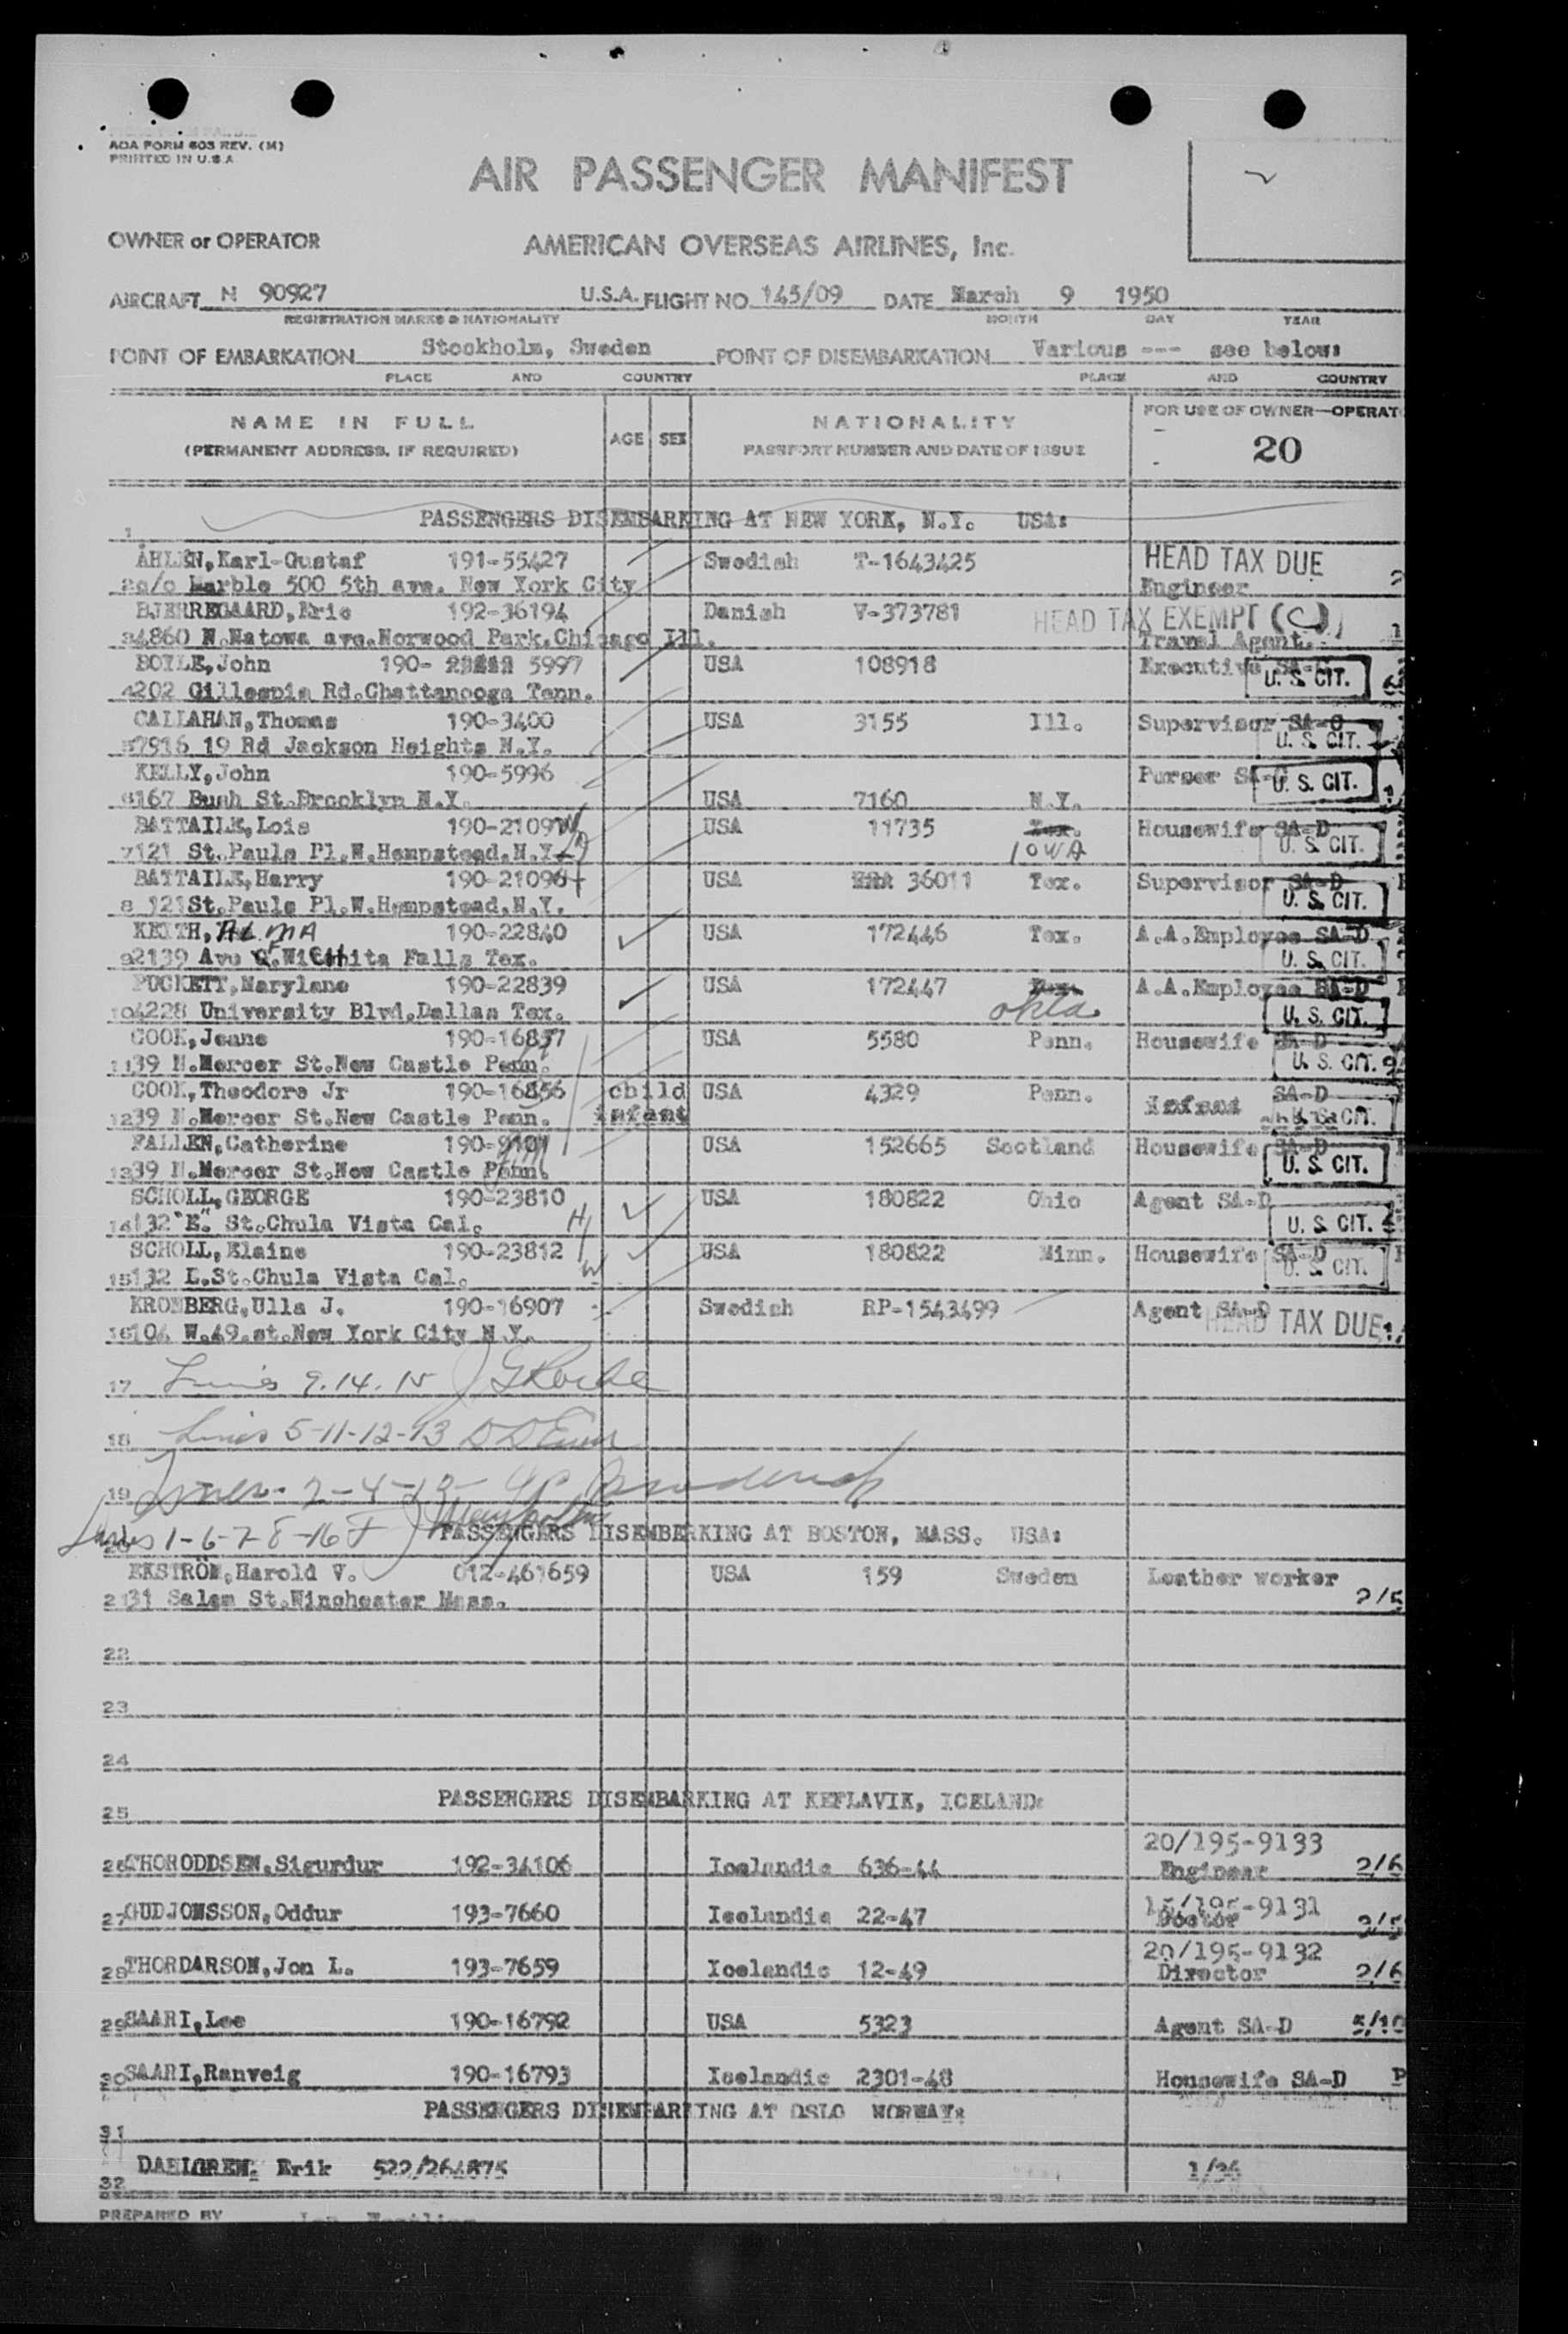 AOA FORM 603 REV. (M)
PRINTED IN U.S.A
AIR PASSENGER MANIFEST
OWNER or OPERATOR AMERICAN OVERSEAS AIRLINES, Inc.
AIRCRAFT N 90927 U.S.A. FLIGHT NO. 145/09 DATE March 9 1950
REGISTRATION MARKS & NATIONALITY MONTH DAY YEAR
POINT OF EMBARKATION Stockholm, Sweden POINT OF DISEMBARKATION Various --- see below:
PLACE AND COUNTRY PLACE AND COUNTRY
NAME IN FULL AGE SEX NATIONALITY FOR USE OF OWNER—OPERAT
(PERMANENT ADDRESS, IF REQUIRED) PASSPORT NUMBER AND DATE OF ISSUE 20
1 PASSENGERS DISEMBARKING AT NEW YORK, N.Y. USA:
ÅHLEN, Karl-Gustaf 191-55427 Swedish T-1643425 HEAD TAX DUE
2 c/o Marble 500 5th ave. New York City Engineer
BJERREGAARD, Eric 192-36194 Danish V-373781 HEAD TAX EXEMPT (C)
3 4860 N.Natowa ave.Norwood Park.Chicago Ill. Travel Agent.
BOYLE, John 190- 5997 USA 108918 Executive SA-C U. S. CIT.
4 202 Gillespie Rd.Chattanooga Tenn.
CALLAHAN, Thomas 190-3400 USA 3155 Ill. Supervisor SA-C
5 7916 19 Rd Jackson Heights N.Y. U. S. CIT.
KELLY, John 190-5996 Purser SA-C U. S. CIT.
6 167 Bush St.Brooklyn N.Y. USA 7160 N.Y.
BATTAILE, Lois 190-21097 USA 11735 Tex. Housewife SA-D
7 121 St.Pauls Pl.W.Hempstead.N.Y. IOWA U. S. CIT.
BATTAILE, Harry 190-21096 USA 36011 Tex. Supervisor SA-D
8 121St.Pauls Pl.W.Hempstead.N.Y. U. S. CIT.
KEITH, ALMA 190-22840 USA 172446 Tex. A.A.Employee SA-D
9 2139 Ave Wichita Falls Tex. U. S. CIT.
PUCKETT, Marylane 190-22839 USA 172447 Tex. A.A.Employee SA-D
10 4228 University Blvd.Dallas Tex. okla. U. S. CIT.
COOK, Jeane 190-16857 USA 5580 Penn. Housewife SA-D
11 39 N.Mercer St.New Castle Penn. U. S. CIT.
COOK, Theodore Jr 190-16856 child USA 4329 Penn. SA-D
12 39 N.Mercer St.New Castle Penn. infant U. S. CIT.
FALLEN, Catherine 190- USA 152665 Scotland Housewife SA-D
13 39 N.Mercer St.New Castle Penn. U. S. CIT.
SCHOLL, GEORGE 190-23810 USA 180822 Ohio Agent SA-D
14 132 "E". St.Chula Vista Cal. H U. S. CIT.
SCHOLL, Elaine 190-23812 USA 180822 Minn. Housewife SA-D
15 132 E.St.Chula Vista Cal. W U. S. CIT.
KROMBERG, Ulla J. 190-16907 Swedish RP-1543499 Agent SA-D
16 104 W.49.st.New York City N.Y. HEAD TAX DUE
17 Lines 9.14.15
18 Lines 5-11-12-13
19
20 Lines 1-6-7-8-16 PASSENGERS DISEMBERKING AT BOSTON, MASS. USA:
EKSTRÖM, Harold V. 012-461659 USA 159 Sweden Leather worker
21 31 Salem St.Winchester Mass. 2/5
22
23
24
25 PASSENGERS DISEMBARKING AT KEFLAVIK, ICELAND:
20/195-9133
26 THORODDSEN, Sigurdur 192-34106 Icelandic 636-44 Engineer 2/6
15/195-9131
27 GUDJONSSON, Oddur 193-7660 Icelandic 22-47 Doctor 2/5
20/195-9132
28 THORDARSON, Jon L. 193-7659 Icelandic 12-49 Director 2/6
29 SAARI, Lee 190-16792 USA 5323 Agent SA-D 5/10
30 SAARI, Ranveig 190-16793 Icelandic 2301-48 Housewife SA-D P
31 PASSENGERS DISEMBARKING AT OSLO NORWAY:
32 DAHLGREN. Erik 522/264875 1/24
PREPARED BY